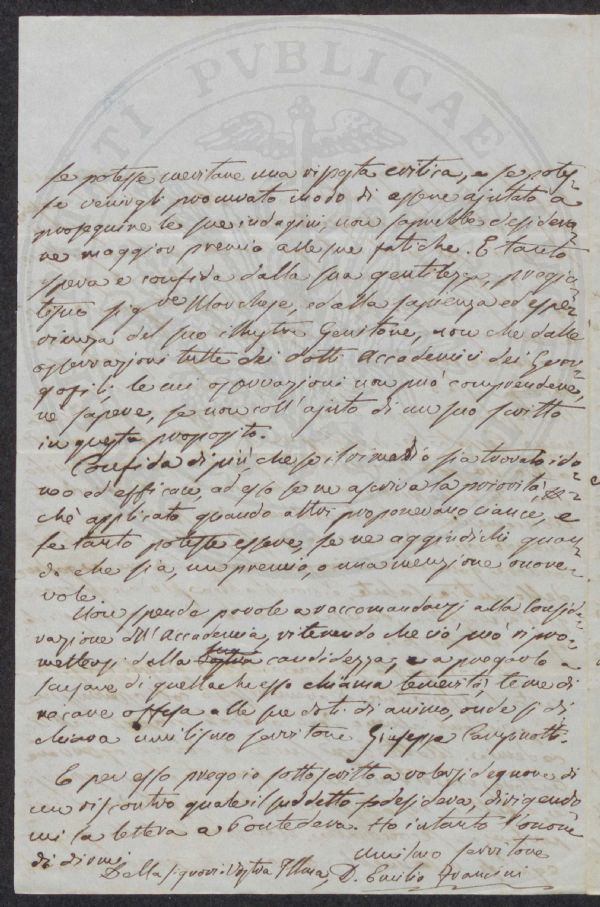 PVBLICAE
se potesse meritare una risposta critica, e se potes-
se venirgli procurato modo di essere ajutato a
proseguire le sue indagini, non saprebbe desidera-
re maggior premio alle sue fatiche. E tanto
spera e confida dalla sua gentilezza, pregia-
tissimo sigre Marchese, e dalla sapienza ed espe-
rienza del suo illustre Genitore, non che dalle
osservazioni tutte dei dotti Accademici dei Geor-
gofili; le cui osservazioni non può comprendere,
ne sapere, se non coll' ajuto di un suo scritto
in questo proposito.
Confida di più, che se il rimedio sia trovato ido-
neo ed efficace, ad esso se ne ascriva la priorità,
chè applicato quando altri proponevano ciance, e
se tanto potesse essere, se ne aggiudichi quan-
do che sia, un premio, o una menzione onore-
vole.
Non spende parole a raccomandarsi alla Consid-
razione dell' Accademia, ritenendo che ciò può ripro-
mettersi dalla sua candidezza; e a pregarlo a
scusare di quella che esso chiama temerità, teme di
recare offesa alle sue doti di animo, onde si di-
chiara umilissimo servitore Giuseppe
E per esso pregoio sottoscritto a volersi degnare di
un riscontro quale il suddetto desidera, dirigendo
mi la lettera a Pontedera. Ho intanto l'onore
di dirmi
Della Signoria Vostra Illma, umilmo servitore
D. Emilio